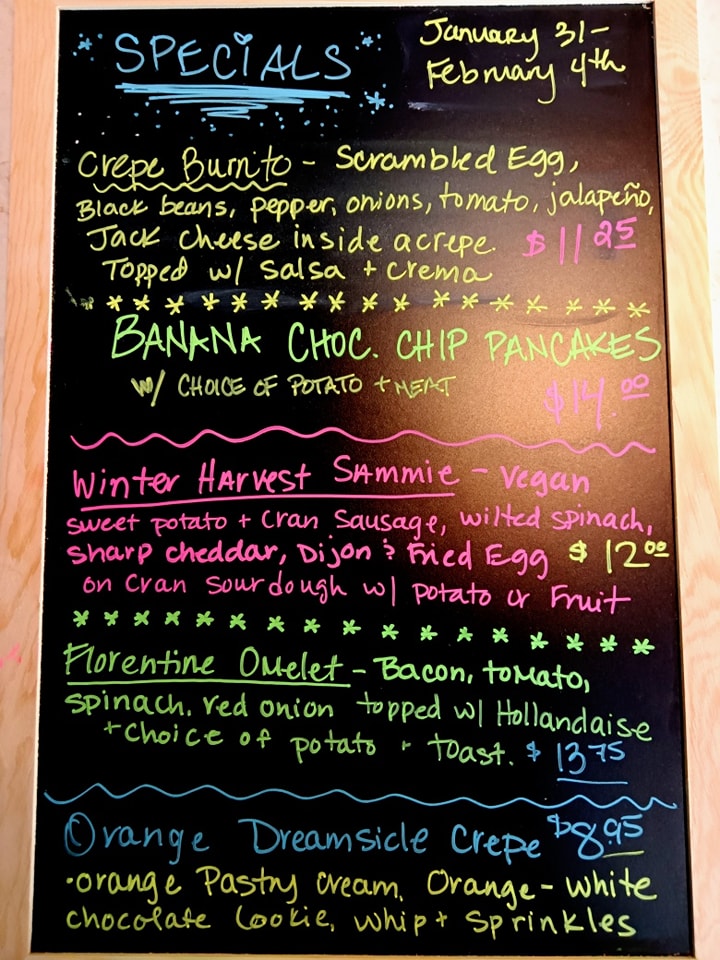 SPECIALS
January 31-
February 4th
Crepe Burrito - Scrambled Egg,
Black beans, pepper, onions, tomato, jalapeño,
Jack cheese inside a crepe. $11.25
Topped w/ salsa + crema
BANANA CHOC. CHIP PANCAKES
w/ CHOICE OF POTATO + MEAT $14.00
Winter Harvest Sammie - vegan
sweet potato + cran sausage, wilted spinach,
sharp cheddar, Dijon & Fried Egg $12.00
on cran sourdough w/ potato or Fruit
Florentine Omelet - Bacon, tomato,
spinach, red onion topped w/ Hollandaise
+ choice of potato + toast. $13.75
Orange Dreamsicle Crepe $8.95
•orange Pastry cream, Orange-white
chocolate cookie, whip + sprinkles